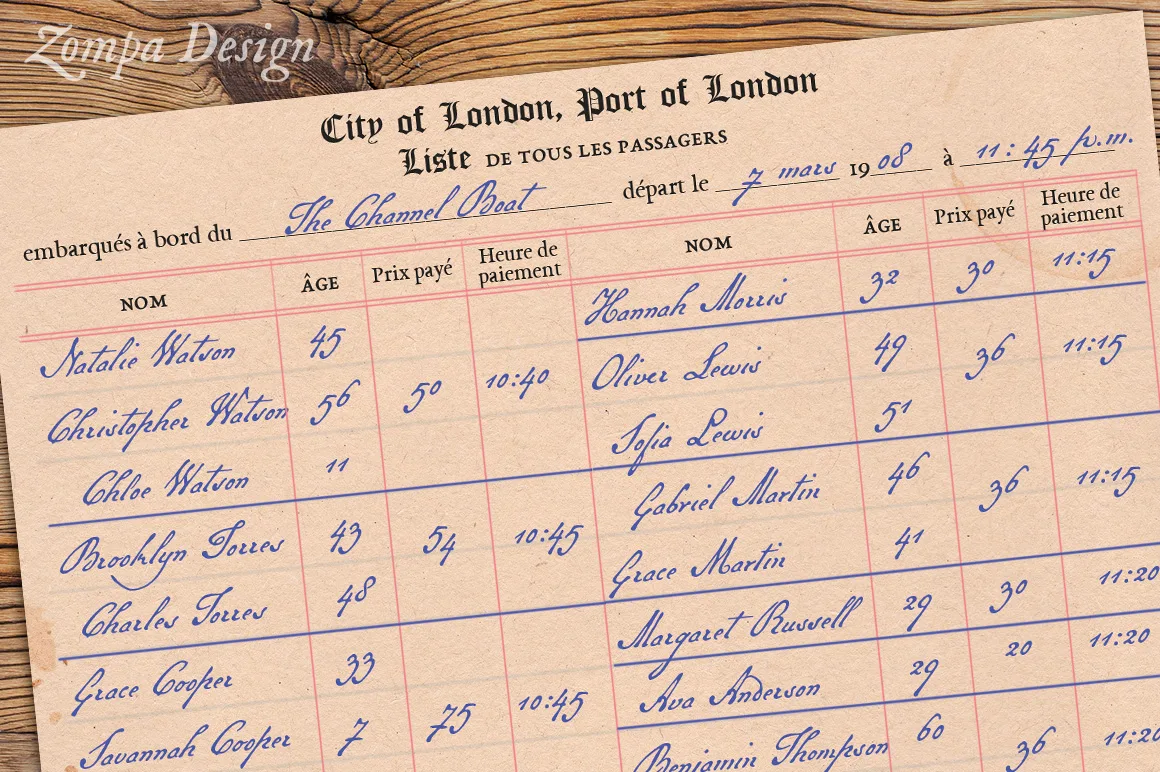 Zompa Design
City of London, Port of London
Liste DE TOUS LES PASSAGERS
embarqués à bord du The Channel Boat départ le 7 mars 1908 à 11:45 p.m.
NOM ÂGE Prix payé Heure de paiement
Natalie Watson 45
Christopher Watson 56 50 10:40
Chloe Watson 11
Brooklyn Torres 43 54 10:45
Charles Torres 48
Grace Cooper 33
Savannah Cooper 7 75 10:45
NOM ÂGE Prix payé Heure de paiement
Hannah Morris 32 30 11:15
Oliver Lewis 49 36 11:15
Sofia Lewis 51
Gabriel Martin 46 36 11:15
Grace Martin 41
Margaret Russell 29 30 11:20
Ava Anderson 29 20 11:20
Benjamin Thompson 60 36 11:20